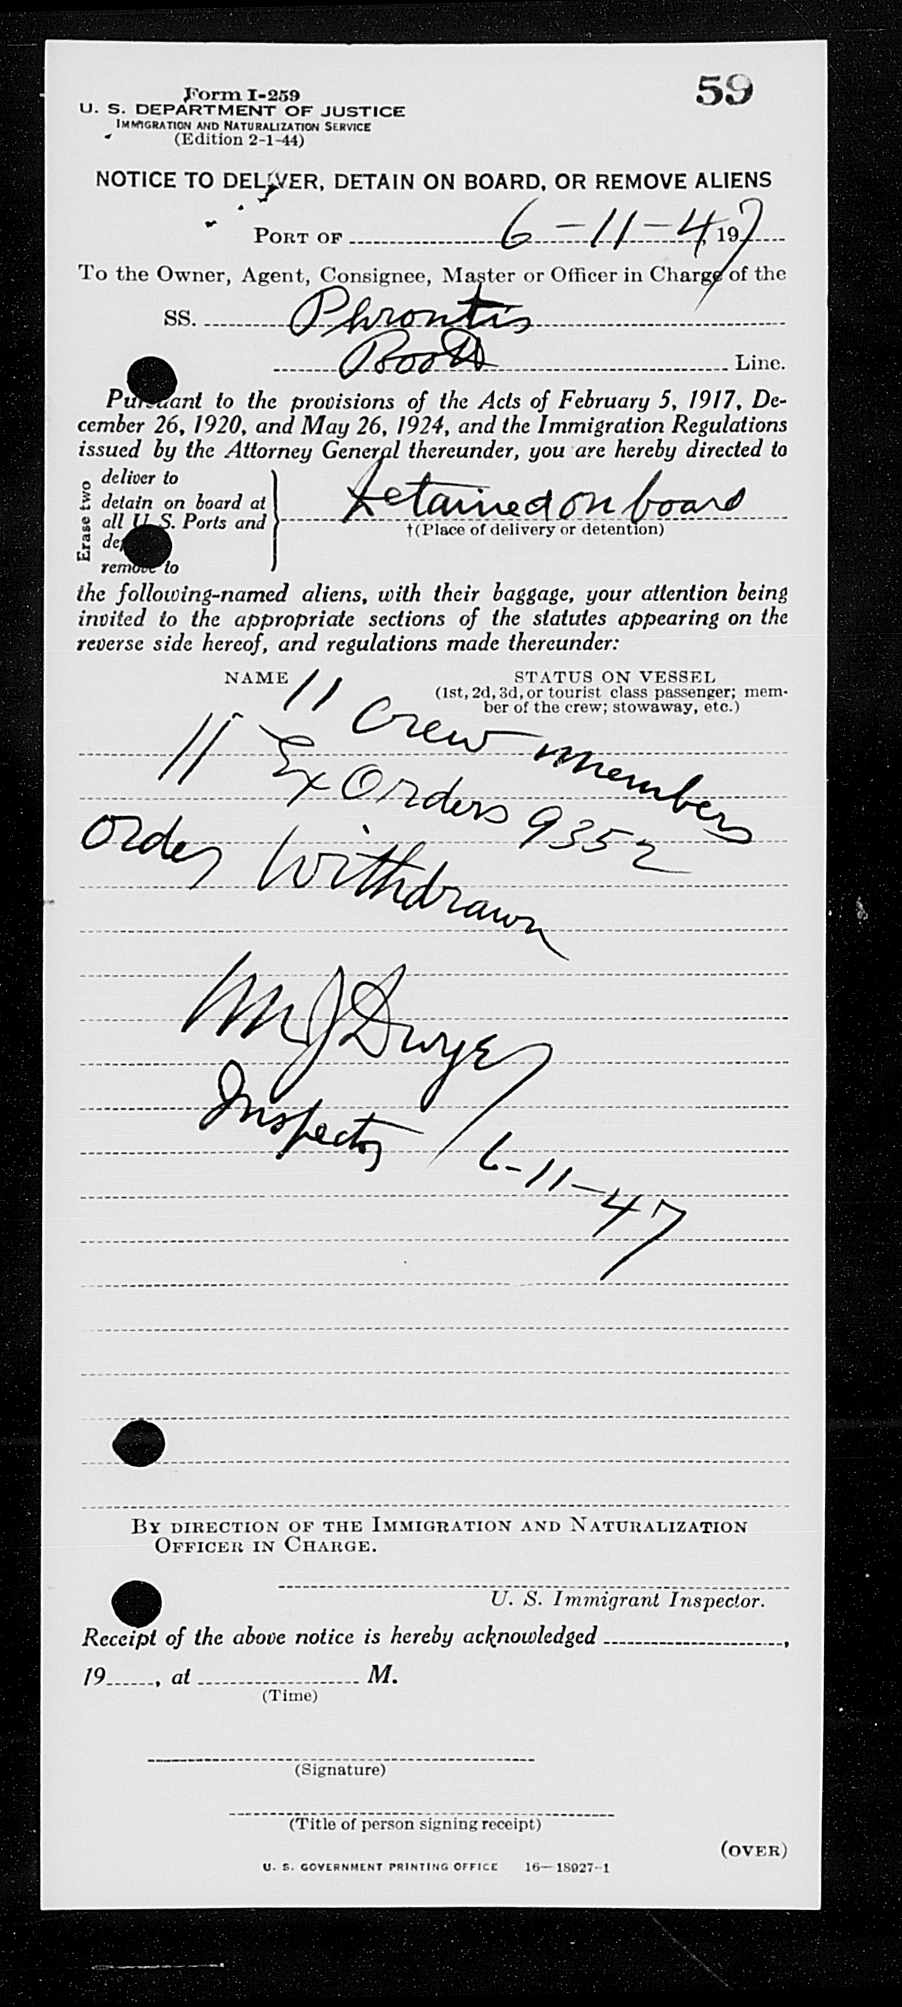 59
Form I-259
U. S. DEPARTMENT OF JUSTICE
IMMIGRATION AND NATURALIZATION SERVICE
(Edition 2-1-44)
NOTICE TO DELIVER, DETAIN ON BOARD, OR REMOVE ALIENS
PORT OF 6-11-47, 19
To the Owner, Agent, Consignee, Master or Officer in Charge of the
SS. Phrontis
Line.
Pursuant to the provisions of the Acts of February 5, 1917, De-
cember 26, 1920, and May 26, 1924, and the Immigration Regulations
issued by the Attorney General thereunder, you are hereby directed to
Erase two
deliver to
detain on board at
all U. S. Ports and
remove to
Detained on board
†(Place of delivery or detention)
the following-named aliens, with their baggage, your attention being
invited to the appropriate sections of the statutes appearing on the
reverse side hereof, and regulations made thereunder:
NAME
STATUS ON VESSEL
(1st, 2d, 3d, or tourist class passenger; mem-
ber of the crew; stowaway, etc.)
11 Crew members
11 Ex Orders 9352
order Withdrawn
Wm J Dwyer
Inspector 6-11-47
BY DIRECTION OF THE IMMIGRATION AND NATURALIZATION
OFFICER IN CHARGE.
U. S. Immigrant Inspector.
Receipt of the above notice is hereby acknowledged ,
19 , at M.
(Time)
(Signature)
(Title of person signing receipt)
(OVER)
U. S. GOVERNMENT PRINTING OFFICE 16—18027-1